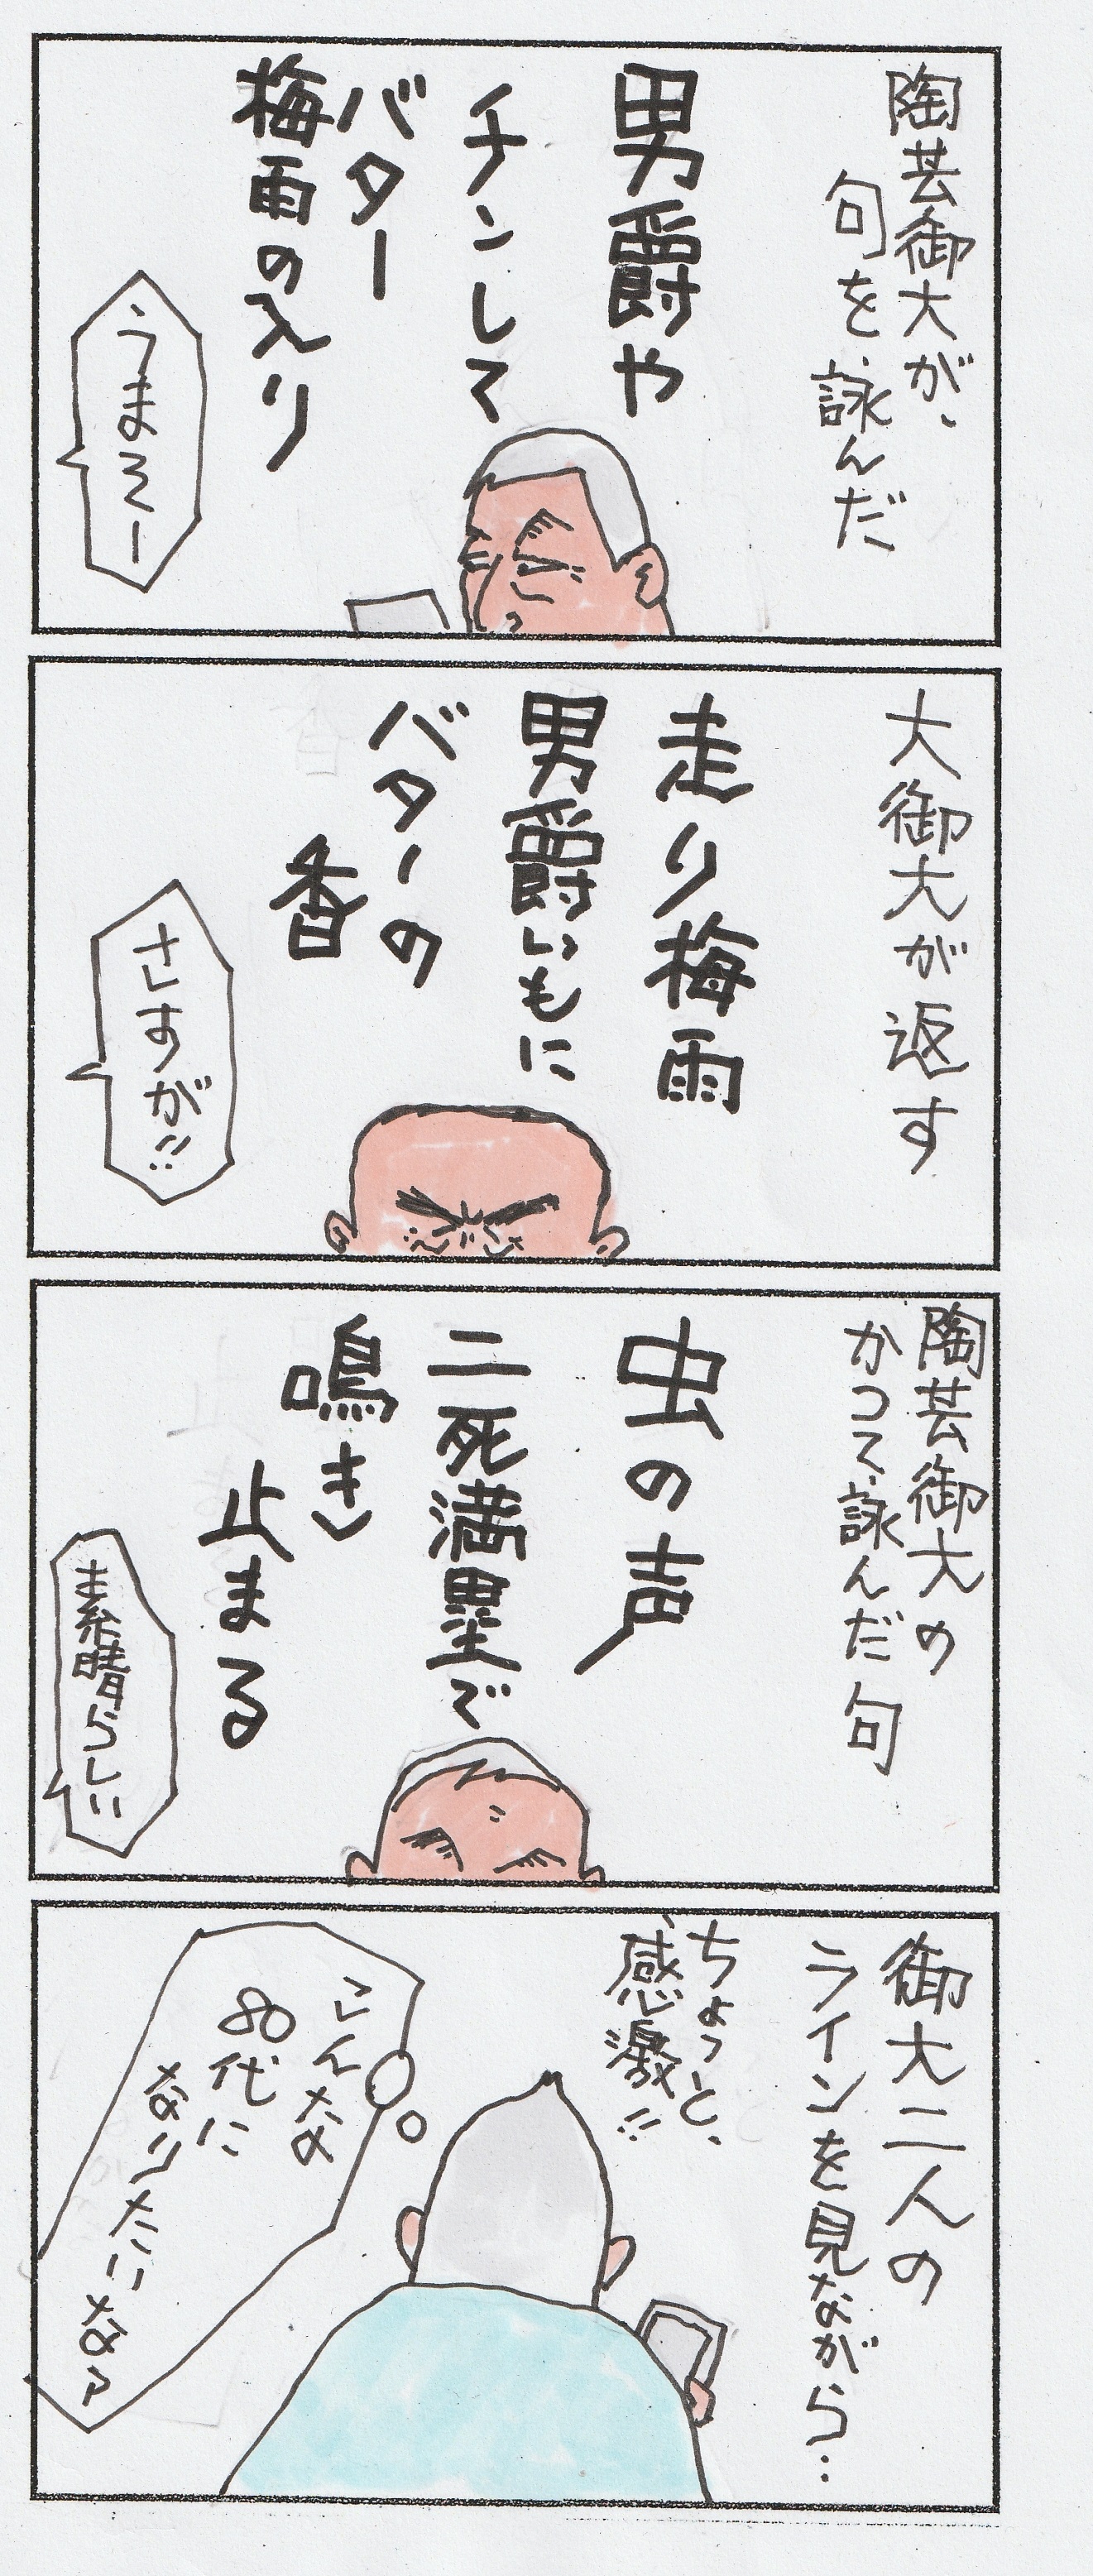 陶芸御大が、
句を詠んだ
男爵や
チンして
バター
梅雨の入り
うまそー
大御大が返す
走り梅雨
男爵いもに
バターの
香
さすが!!
陶芸御大の
かつて詠んだ句
虫の声
二死満塁で
鳴き
止まる
素晴らしい
御大二人の
ラインを見ながら…
ちょっと、
感激!!
こんな
80代に
なりたいなァ